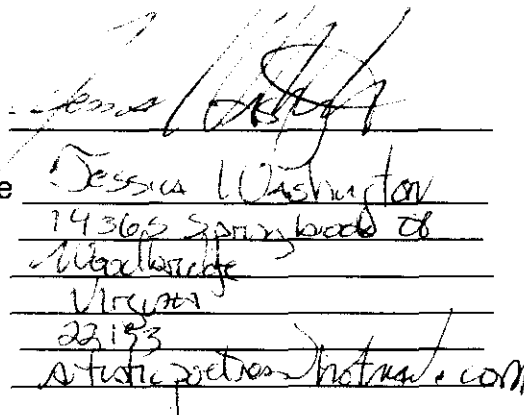 e Jessica Washington
14365 Springbrook Ct
Woodbridge
Virginia
22193
hotmail.com